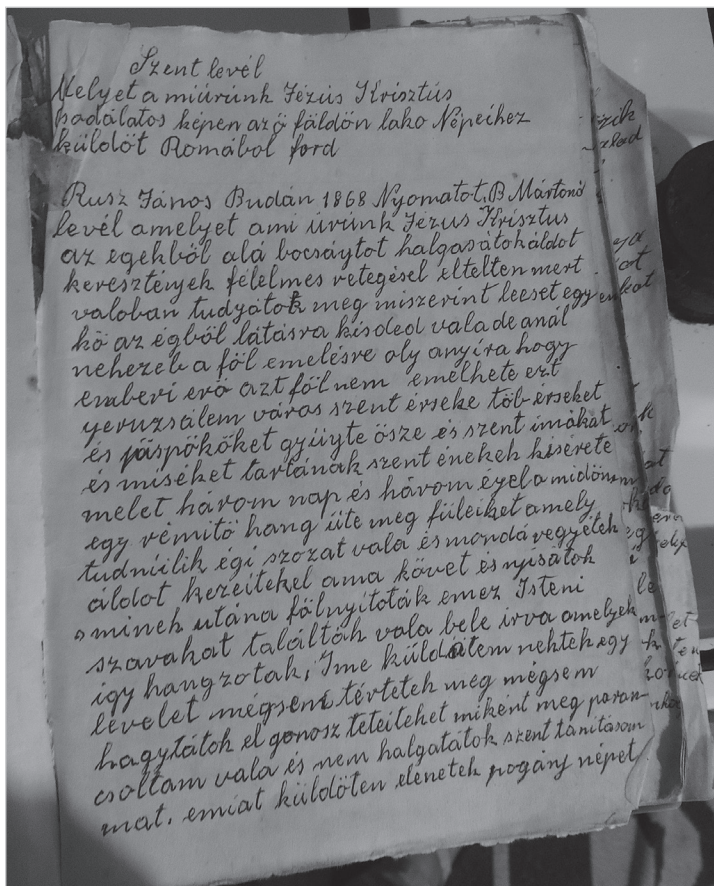 Szent levél
Melyet a miúrúnk Jézús Krisztús
hadálatos képen az ő földön lako Népeihez
küldöt Romábol ford
Rusz János Budán 1868 Nyomatot, B Mártonö
levél amelyet ami úrúnk Jézus Krisztus
az egekből alá bocsáytot halgasátok áldot
keresztények félelmes retegésel eltelten mert
valoban tudyátok meg miszerint leeset egy
kö az égből látásra kisded vala de anál
nehezeb a föl emelésre oly anyíra hogy
emberi erö azt föl nem emelhete ezt
yeruzsálem város szent érseke töb érseket
és püspököket gyüyte ösze és szent imákat
és miséket tartának szent énekek kisérete
melet három nap és három éyel a midön
egy rémitö hang üte meg füleiket amely
tudniilik égi szozat vala és mondá vegyétek
áldot kezeitekel ama követ és nyisátok
minek utána fölnyitoták emez Isteni
szavakat találták vala bele irva amelyek
igy hangzotak, Ime küldötem nektek egy
levelet mégsem tértetek meg mégsem
hagytátok el gonosz teteiteket miként meg paran-
csoltam vala és nem halgatátok szent tanitásom
mat. emiat küldöten elenetek pogány népet